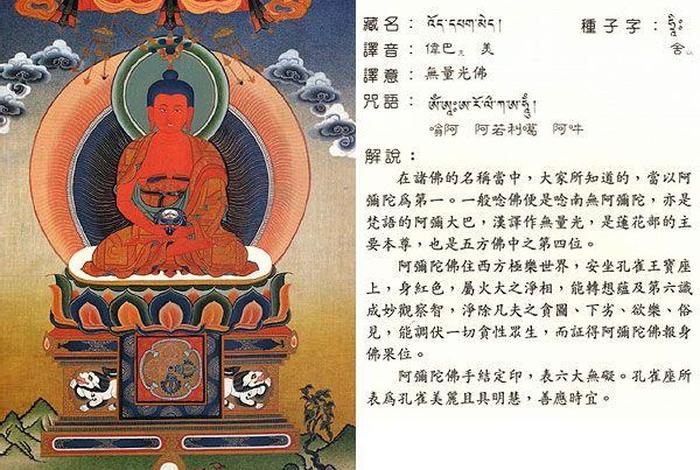 藏名：འོད་དཔག་མེད།　種子字：ཧྲཱིཿ
譯音：偉巴ㄤ美　舍ㄙ
譯意：無量光佛
咒語：ཨོཾ་ཨཱཿཨ་རོ་ལི་ཀ་ཨ་ཧཱུྃ།
嗡阿 阿若利噶 阿吽
解說：
在諸佛的名稱當中，大家所知道的，當以阿
彌陀爲第一。一般唸佛便是唸南無阿彌陀，亦是
梵語的阿彌大巴，漢譯作無量光，是蓮花部的主
要本尊，也是五方佛中之第四位。
阿彌陀佛住西方極樂世界，安坐孔雀王寶座
上，身紅色，屬火大之淨相，能轉想蘊及第六識
成妙觀察智，淨除凡夫之貪圖、下劣、欲樂、俗
見，能調伏一切貪性眾生，而証得阿彌陀佛報身
佛果位。
阿彌陀佛手結定印，表六大無礙。孔雀座所
表爲孔雀美麗且具明慧，善應時宜。